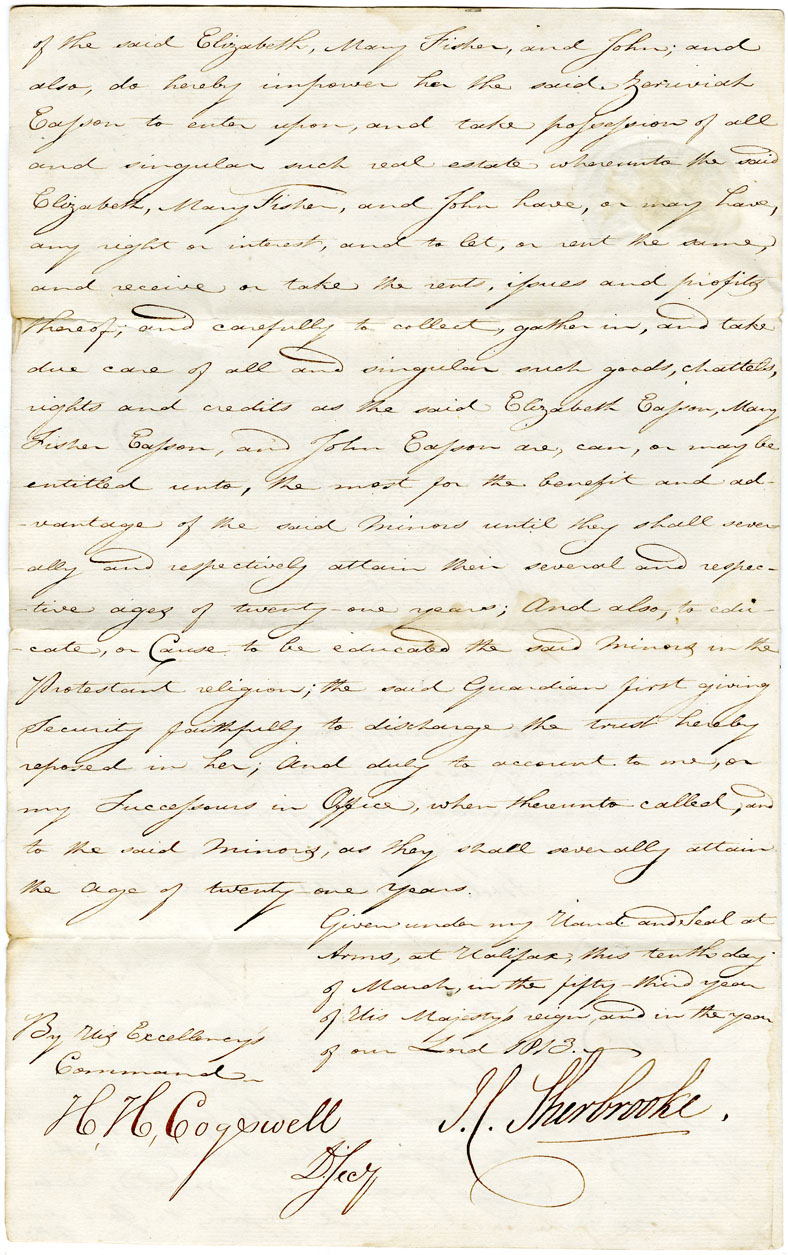 of the said Elizabeth, Mary Fisher, and John; and
also, do hereby impower her the said Zeruviah
Eaſson to enter upon, and take poſseſsion of all
and singular such real estate whereunto the said
Elizabeth, Mary Fisher, and John have, or may have,
any right or interest, and to let, or rent the same,
and receive or take the rents, iſsues and profits
thereof; and carefully to collect, gather in, and take
due care of all and singular such goods, chattels,
rights and credits as the said Elizabeth Eaſson, Mary
Fisher Eaſson, and John Eaſson are, can, or may be
entitled unto, the most for the benefit and ad-
-vantage of the said Minors until they shall sever
-ally and respectively attain their several and respec-
-tive ages of twenty-one years; And also, to edu-
-cate, or Cause to be educated the said Minors in the
Protestant religion; the said Guardian first giving
Security faithfully to discharge the trust hereby
reposed in her; And duly to account to me, or
my Succeſsours in Office, when thereunto called, and
to the said Minors, as they shall severally attain
the age of twenty-one Years.
Given under my Hand and Seal at
Arms, at Halifax, this tenth day
of March, in the fifty-third year
of His Majesty's reign, and in the year
of our Lord 1813.
By His Excellency's
Command
H. H. Cogswell
D. Secy
J. C. Sherbrooke.